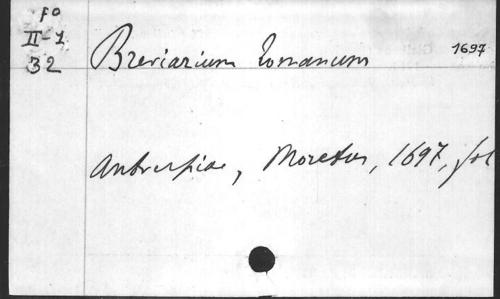 fo
II-1
32
Breviarium romanum
1697
Antverpiae, Moretus, 1697, fol